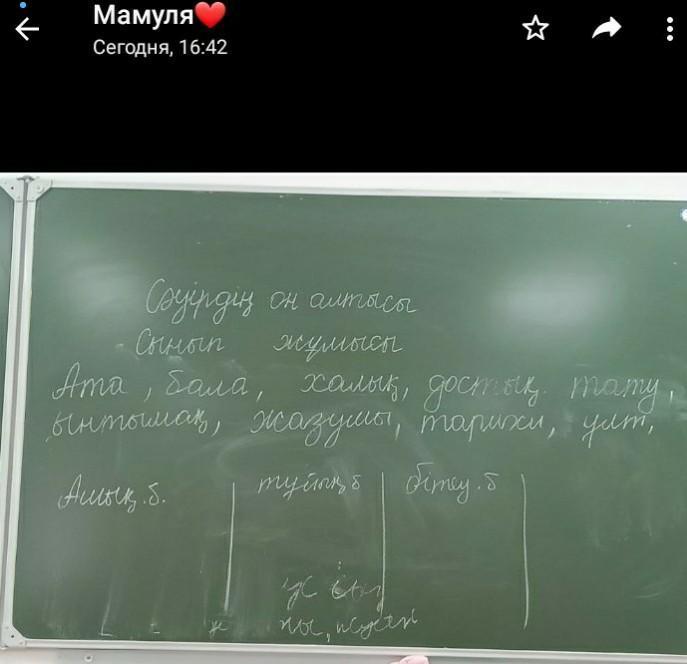 Мамуля❤️
Сегодня, 16:42
Сәуірдің он алтысы
Сынып жұмысы
Ата, бала, халық, достық. тату,
ынтымақ, жазушы, тарихи, ұлт,
Ашық.б. тұйық б бітеу.б